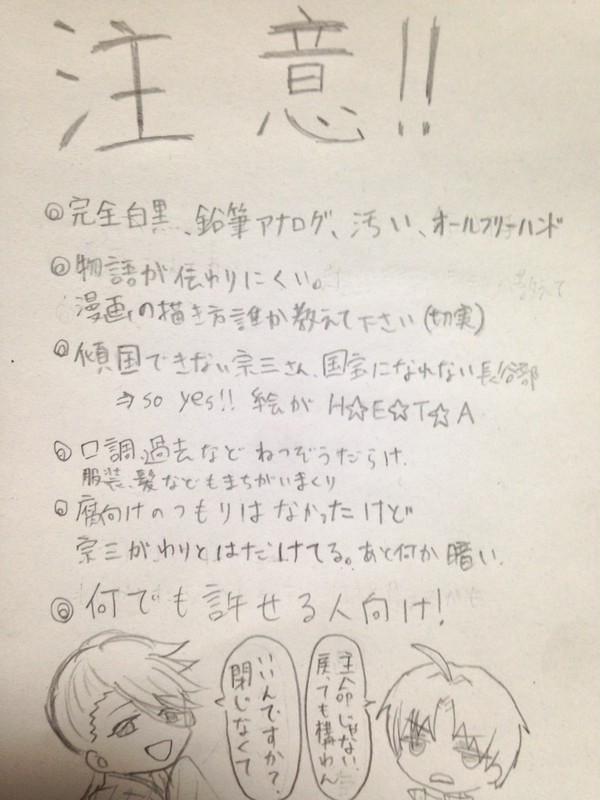 注意!!
◎完全白黒、鉛筆アナログ、汚い、オールフリーハンド
◎物語が伝わりにくい。
漫画の描き方誰か教えて下さい(切実)
◎傾国できない宗三さん、国宝になれない長谷部
⇒so yes!! 絵がH☆E☆T☆A
◎口調、過去などねつぞうだらけ、
服装、髪などもまちがいまくり
◎腐向けのつもりはなかったけど
宗三がわりとはだけてる。あと何か暗い、
◎何でも許せる人向け!
主命じゃない、
戻っても構わん
いいんですか?
閉じなくて